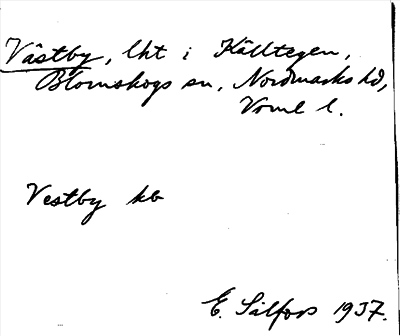 Västby, lht i Källtegen,
Blomskogs sn, Nordmarks hd,
Vrml l.
Vestby kb
E. Silfors 1937.